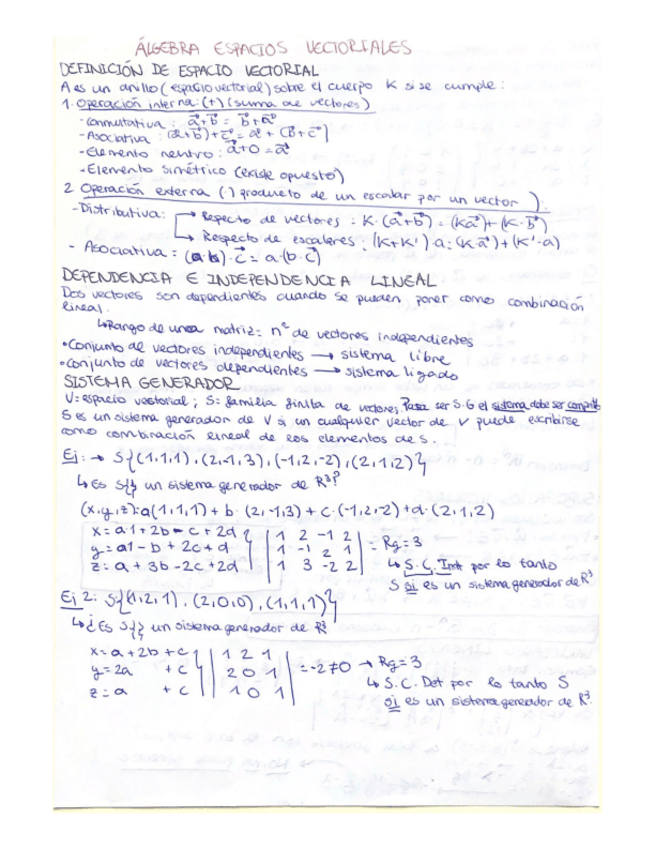 ÁLGEBRA (+) ESPACIOS VECTORIALES
DEFINICIÓN DE ESPACIO VECTORIAL
A es un anillo (espacio vectorial) sobre el cuerpo K si se cumple:
1. Operación interna: (+) (suma de vectores)
- Conmutativa: a⃗+b⃗ = b⃗+a⃗
- Asociativa: (a⃗+b⃗)+c⃗ = a⃗+(b⃗+c⃗)
- Elemento neutro: a⃗+0 = a⃗
- Elemento simétrico (existe opuesto)
2 Operación externa (·) producto de un escalar por un vector).
- Distributiva: → Respecto de vectores: K·(a⃗+b⃗) = (Ka⃗)+(K·b⃗)
↳ Respecto de escalares: (K+K')·a = (K·a⃗)+(K'·a)
- Asociativa = (a·b)·c⃗ = a·(b·c⃗)
DEPENDENCIA E INDEPENDENCIA LINEAL
Dos vectores son dependientes cuando se pueden poner como combinación
lineal.
↳ Rango de una matriz = nº de vectores independientes
• Conjunto de vectores independientes → sistema libre
• Conjunto de vectores dependientes → sistema ligado
SISTEMA GENERADOR
V = espacio vectorial; S = familia finita de vectores. Para ser S.G el sistema debe ser compatib
S es un sistema generador de V si un cualquier vector de V puede escribirse
como combinación lineal de los elementos de S.
Ej: → S{(1,1,1), (2,-1,3), (-1,2,-2), (2,1,2)}
↳ Es S{} un sistema generador de R³?
(x,y,z) = a(1,1,1) + b·(2,-1,3) + c·(-1,2,-2) + d·(2,1,2)
x = a·1 + 2b - c + 2d | 1 2 -1 2 |
y = a1 - b + 2c + d | 1 -1 2 1 | = Rg = 3
z = a + 3b - 2c + 2d | 1 3 -2 2 | ↳ S.C. Ind por lo tanto
S si es un sistema generador de R³
Ej 2: S{(1,2,1), (2,0,0), (1,1,1)}
↳ ¿Es S{} un sistema generador de R³
x = a + 2b + c | 1 2 1 |
y = 2a + c | 2 0 1 | = -2 ≠ 0 → Rg = 3
z = a + c | 1 0 1 | ↳ S.C. Det por lo tanto S
si es un sistema generador de R³.